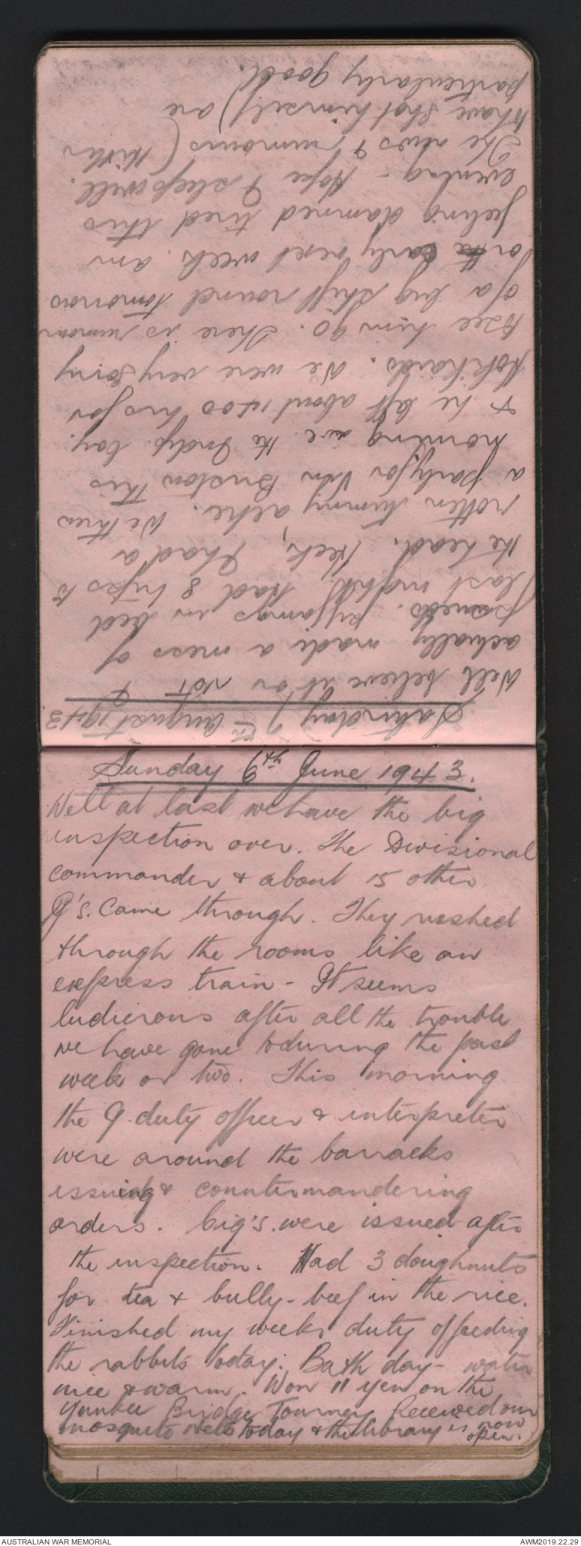 Saturday 7th August 1943
Well believe it or not I
actually made a mess of
pyjamas in bed
last night. Had 8 trips to
the head. Heck, I had a
rotten tummy ache. We threw
a party for Van Buskirk this
morning
& he left about 1400 hrs for
Hokkaido. We were very sorry
to see him go. There is rumour
of a big shift round tomorrow
or early next week. Am
feeling damned tired this
evening - Hope I sleep well.
The news & rumours (Hitler
to have shot himself) are
particularly good.
Sunday 6th June 1943.
Well at last we have the big
inspection over. The Divisional
commander & about 15 other
Q's. Came through. They rushed
through the rooms like an
express train - It seems
ludicrous after all the trouble
we have gone to during the past
week or two. This morning
the Q. duty officer & interpreter
were around the barracks
issueing & countermanding
orders. Cig's. were issued after
the inspection. Had 3 doughnuts
for tea & bully-beef in the rice.
Finished my weeks duty of feeding
the rabbits today. Bath day - water
nice & warm. Won 11 yen on the
Yankee Bridge Tourney. Received our
mosquito nets today & the library is now
open.
AUSTRALIAN WAR MEMORIAL
AWM2019.22.29